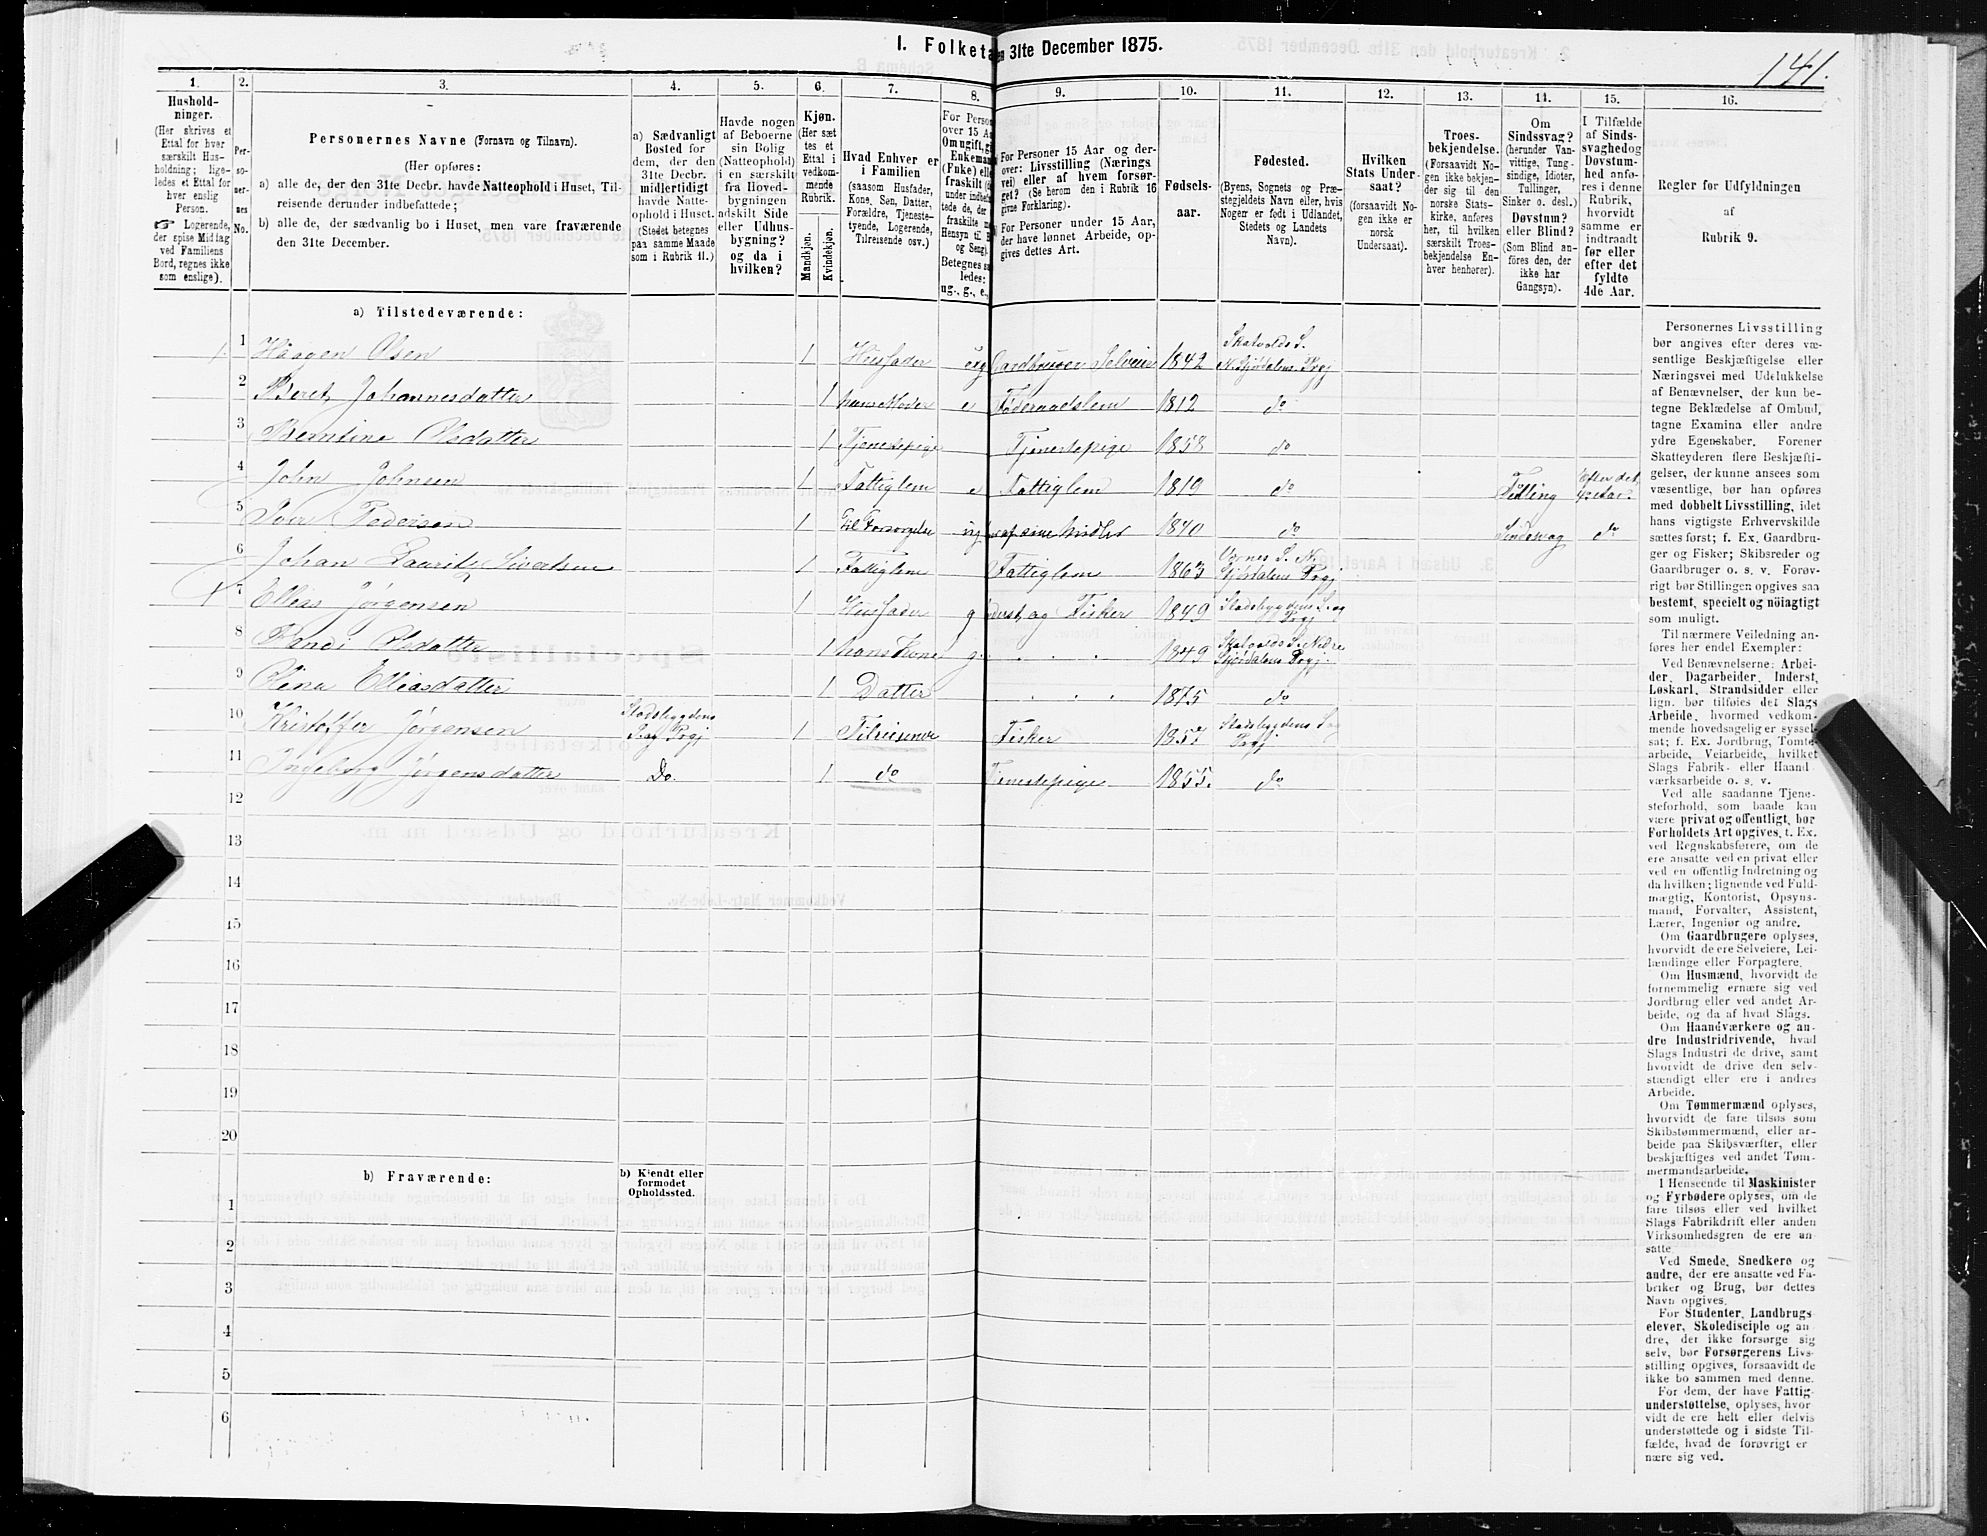 I. Folketa 31te December 1875.
141.
1. 2. 3. 4. 5. 6. 7. 8. 9. 10. 11. 12. 13. 14. 15. 16.
Hushold-
ninger.
(Her skrives et
Ettal for hver
særskilt Hus-
holdning; lige-
ledes et Ettal for
hver enslig
Person.
☞ Logerende,
der spise Middag
ved Familiens
Bord, regnes ikke
som enslige).
Per-
soner-
nes
No.
Personernes Navne (Fornavn og Tilnavn).
(Her opføres:
a) alle de, der den 31te Decbr. havde Natteophold i Huset, Til-
reisende derunder indbefattede;
b) alle de, der sædvanlig bo i Huset, men vare fraværende
den 31te December.
a) Sædvanligt
Bosted for
dem, der den
31te Decbr.
midlertidigt
havde Natte-
ophold i Huset.
(Stedet betegnes
paa samme Maade
som i Rubrik 11.)
Havde nogen
af Beboerne
sin Bolig
(Natteophold)
i en særskilt
fra Hoved-
bygningen
adskilt Side
eller Udhus-
bygning?
og da i
hvilken?
Kjøn.
(Her sæt
tes et
Ettal i
vedkom-
mende
Rubrik.
Mandkjøn.
Kvindekjøn.
Hvad Enhver er
i Familien
(saasom Husfader,
Kone, Søn, Datter,
Forældre, Tjeneste-
tyende, Logerende,
Tilreisende osv.)
For Person
over 15 Aa
Om ugift, gi
Enkeman
(Enke) elle
fraskilt
under indbefat
tede de, der
fraskilte m
Hensyn til B
og Seng).
Betegnes saa
ledes:
ug., g., e.,
For Personer 15 Aar og der-
over: Livsstilling (Nærings
vei) eller af hvem forsør-
get? (Se herom den i Rubrik 16
givne Forklaring).
For Personer under 15 Aar,
der have lønnet Arbeide, op-
gives dettes Art.
Fødsels-
aar.
Fødested.
(Byens, Sognets og Præ-
stegjeldets Navn, eller, hvis
Nogen er født i Udlandet,
Stedets og Landets
Navn).
Hvilken
Stats Under-
saat?
(forsaavidt No-
gen ikke er
norsk
Undersaat).
Troes-
bekjendelse.
(Forsaavidt No-
gen ikke bekjen-
der sig til den
norske Stats-
kirke, anføres
her, til hvilken
særskilt Troes-
bekjendelse En-
hver henhører).
Om
Sindssvag?
(herunder Van-
vittige, Tung-
sindige, Idioter,
Tullinger,
Sinker o. desl.)
Døvstum?
eller Blind?
(Som Blind an-
føres den, der
ikke har
Gangsyn).
I Tilfælde
af Sinds-
svaghed og
Døvstum-
hed anfø-
res i denne
Rubrik,
hvorvidt
samme er
indtraadt
før eller
efter det
fyldte
4de Aar.
Regler for Udfyldningen
af
Rubrik 9.
a) Tilstedeværende:
1 1 Haagen Olsen 1 Husfader ug Gaardbruger Selveier 1842 Skatvolds S. N. Stjørdalens Prgj
2 Beret Johannesdatter 1 hans Moder e Føderaadslem 1812 do
3 Berntine Olsdatter 1 Tjenestepige Tjenestepige 1858 do
4 John Johnsen 1 Fattiglem e Fattiglem 1819 do Tulling Efter det 4de Aar
5 Iver Pedersen 1 Til Forsørgelse ug af sine Midler 1840 do Sindssvag do
6 Johan Laurits Sivertsen 1 Fattiglem Fattiglem 1863 Værnes S. N. Stjørdalens Prgj
1 7 Ellias Jørgensen 1 Husfader g Inderst og Fisker 1849 Stadsbygdens S. og Prgj
8 Randi Olsdatter 1 hans Kone g. 1849 Skatvolds S. Nedre Stjørdalens Prgj.
9 Olina Elliasdatter 1 Datter 1875 do
10 Kristoffer Jørgensen Stadsbygdens S. og Prgj 1 Tilreisende Fisker 1857 Stadsbygdens S. og Prgj
11 Ingeborg Jørgensdatter Do. 1 do Tjenestepige 1855. do
12
13
14
15
16
17
18
19
20
b) Fraværende:
b) Kjendt eller
formodet
Opholdssted.
1
2
3
4
5
6
Personernes Livsstilling
bør angives efter deres væ-
sentlige Beskjæftigelse eller
Næringsvei med Udelukkelse
af Benævnelser, der kun be-
tegne Beklædelse af Ombud,
tagne Examina eller andre
ydre Egenskaber. Forener
Skatteyderen flere Beskjæfti-
gelser, der kunne ansees som
væsentlige, bør han opføres
med dobbelt Livsstilling, idet
hans vigtigste Erhvervskilde
sættes først; f. Ex. Gaardbru-
ger og Fisker; Skibsreder og
Gaardbruger o. s. v. Forøv-
rigt bør Stillingen opgives saa
bestemt, specielt og nöiagtigt
som muligt.
Til nærmere Veiledning an-
føres her endel Exempler:
Ved Benævnelserne: Arbei-
der, Dagarbeider, Inderst,
Løskarl, Strandsidder eller
lign. bør tilføies det Slags
Arbeide, hvormed vedkom-
mende hovedsagelig er syssel-
sat; f. Ex. Jordbrug, Tomte-
arbeide, Veiarbeide, hvilket
Slags Fabrik- eller Haand
værksarbeide o. s. v.
Ved alle saadanne Tjene-
steforhold, som baade kan
være privat og offentligt, bør
Forholdets Art opgives, t. Ex.
ved Regnskabsførere, om de
ere ansatte ved en privat eller
ved en offentlig Indretning og
da hvilken; lignende ved Fuld-
mægtig, Kontorist, Opsyns-
mand, Forvalter, Assistent,
Lærer, Ingeniør og andre.
Om Gaardbrugere oplyses,
hvorvidt de ere Selveiere, Lei-
lændinge eller Forpagtere.
Om Husmænd, hvorvidt de
fornemmelig ernære sig ved
Jordbrug eller ved andet Ar-
beide, og da af hvad Slags.
Om Haandværkere og an-
dre Industridrivende, hvad
Slags Industri de drive, samt
hvorvidt de drive den selv-
stændigt eller ere i andres
Arbeide.
Om Tømmermænd oplyses,
hvorvidt de fare tilsøs som
Skibstømmermænd, eller ar-
beide paa Skibsværfter, eller
beskjæftiges ved andet Tøm-
mermandsarbeide.
I Henseende til Maskinister
og Fyrbødere oplyses, om de
fare tilsøs eller ved hvilket
Slags Fabrikdrift eller anden
Virksomhedsgren de ere an-
satte
Ved Smede, Snedkere og
andre, der ere ansatte ved Fa-
briker og Brug, bør dettes
Navn opgives.
For Studenter, Landbrugs
elever, Skoledisciple og an
dre, der ikke forsørge sig
selv, bør Forsørgerens Livs-
stilling opgives, forsaavidt de
ikke bo sammen med denne.
For dem, der have Fattig-
understøttelse, oplyses, hvor
vidt de ere helt eller delvis
understøttede og i sidste Til-
fælde, hvad de forøvrigt er
nære sig ved.